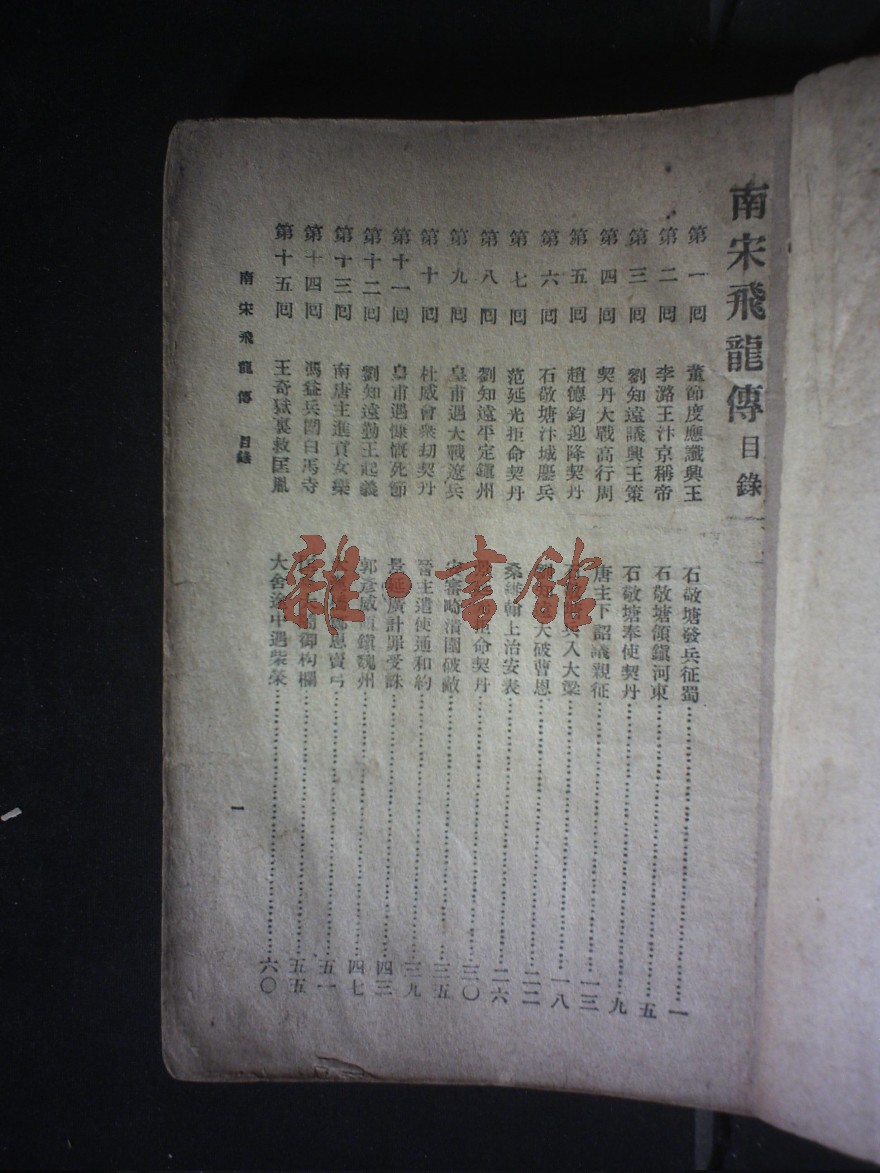 南宋飛龍傳 目錄
第一回 董節度應讖興王 石敬塘發兵征蜀 一
第二回 李潞王汴京稱帝 石敬塘領鎮河東 五
第三回 劉知遠議興王策 石敬塘奉使契丹 九
第四回 契丹大戰高行周 唐主下詔議親征 一三
第五回 趙德鈞迎降契丹 兵入大梁 一八
第六回 石敬塘汴城鏖兵 大破曹恩 二二
第七回 范延光拒命契丹 桑維翰上治安表 二六
第八回 劉知遠平定鎮州 拒命契丹 三〇
第九回 皇甫遇大戰遼兵 審 潰圍破敵 三五
第十回 杜威會衆劫契丹 晉主遣使通和約 三九
第十一回 皇甫遇慷慨死節 景延廣計罪受誅 四三
第十二回 劉知遠勤王起義 郭彥威 鎮魏州 四七
第十三回 南唐主進貢女樂 恩賣弓 五一
第十四回 馮益兵圍白馬寺 鬧御构欄 五五
第十五回 王奇獄裏救匡胤 大舍途中遇柴榮 六〇
南宋飛龍傳 目錄
一
雜·書館